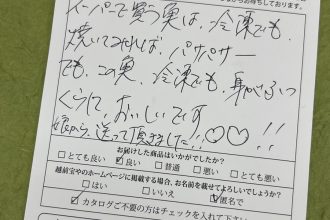 スーパーで買う魚は、冷凍でも、
焼いてみれば、パサパサー
でも、この魚、冷凍でも、身がふっ
くらして、おいしいです
娘から、送って頂きました!!♡♡!!
お届けした商品はいかがでしたか?
□とても良い ☑良い □普通 □悪い □とても悪い
越前宝やのホームページに掲載する場合、お名前を載せてよろしいでしょうか?
□はい □いいえ ☑匿名で
□カタログご不要の方はチェックを入れて下さい